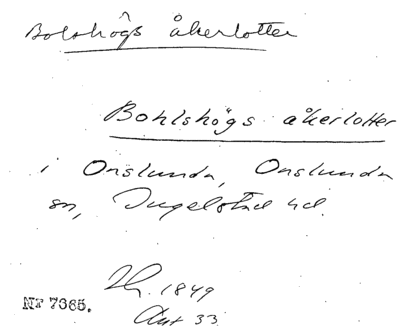 Bolshögs åkerlotter
Bohlshögs åkerlotter
i Onslunda, Onslunda
sn, Ingelstad hd.
1849
Akt 33
Nr 7365.